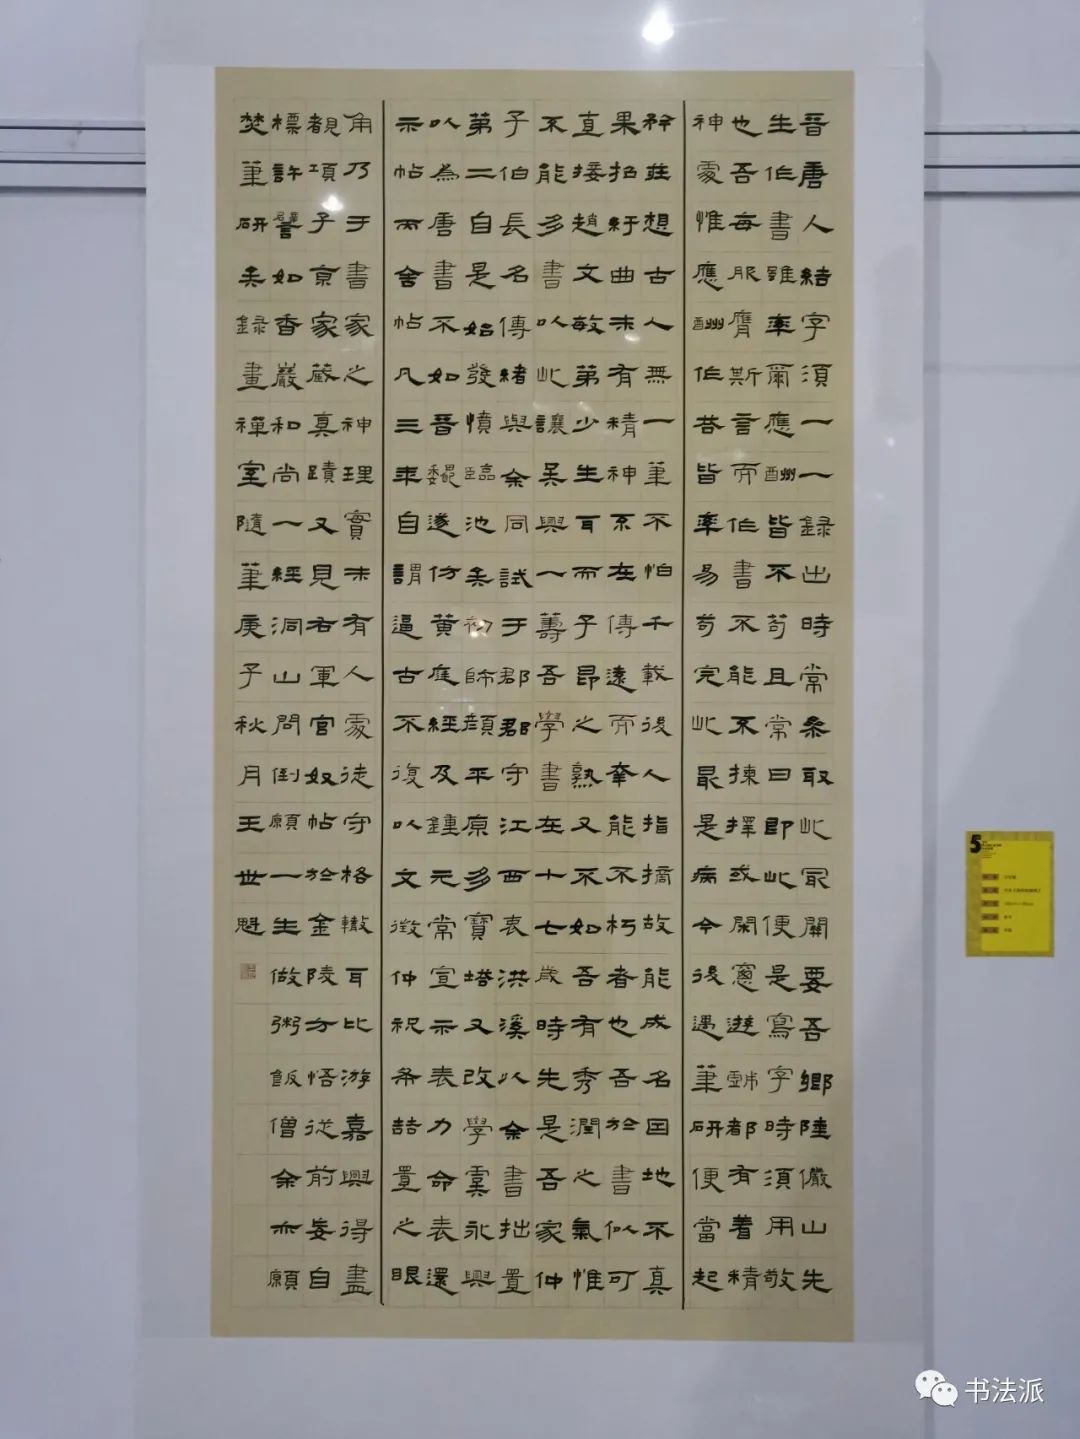 晉唐人結字須一一錄出時常參取此冣關要吾鄉陸儼山先
生作書雖率爾應酬皆不苟且常曰即此便是寫字時須用敬
也吾每服膺斯言而作書不能不揀擇或閑窻遊戲都有着精
神處惟應酬作荅皆率易苟完此最是病今後遇筆研便當起
矜莊想古人無一筆不怕千載後人指摘故能成名因地不真
果招紆曲未有精神不在傳遠而幸能不朽者也吾於書似可
直接趙文敏第少生耳而子昂之熟又不如吾有秀潤之氣惟
不能多書以此讓吳興一籌吾學書在十七歲時先是吾家仲
子伯長名傳緒與余同試于郡郡守江西衷洪溪以余書拙置
第二自是始發憤臨池矣初師顏平原多寶塔又改學虞永興
以為唐書不如晉魏遂仿黃庭經及鍾元常宣示表力命表還
示帖丙舍帖凡三年自謂逼古不復以文徵仲祝希喆置之眼
角乃于書家之神理實未有人處徒守格轍耳比游嘉興得盡
覩項子京家藏真蹟又見右軍官奴帖於金陵方悟從前妄自
標許譬如香巖和尚一經洞山問倒願一生做粥飯僧余亦願
焚筆研矣錄畫禪室隨筆庚子秋月王世魁
5
书法派